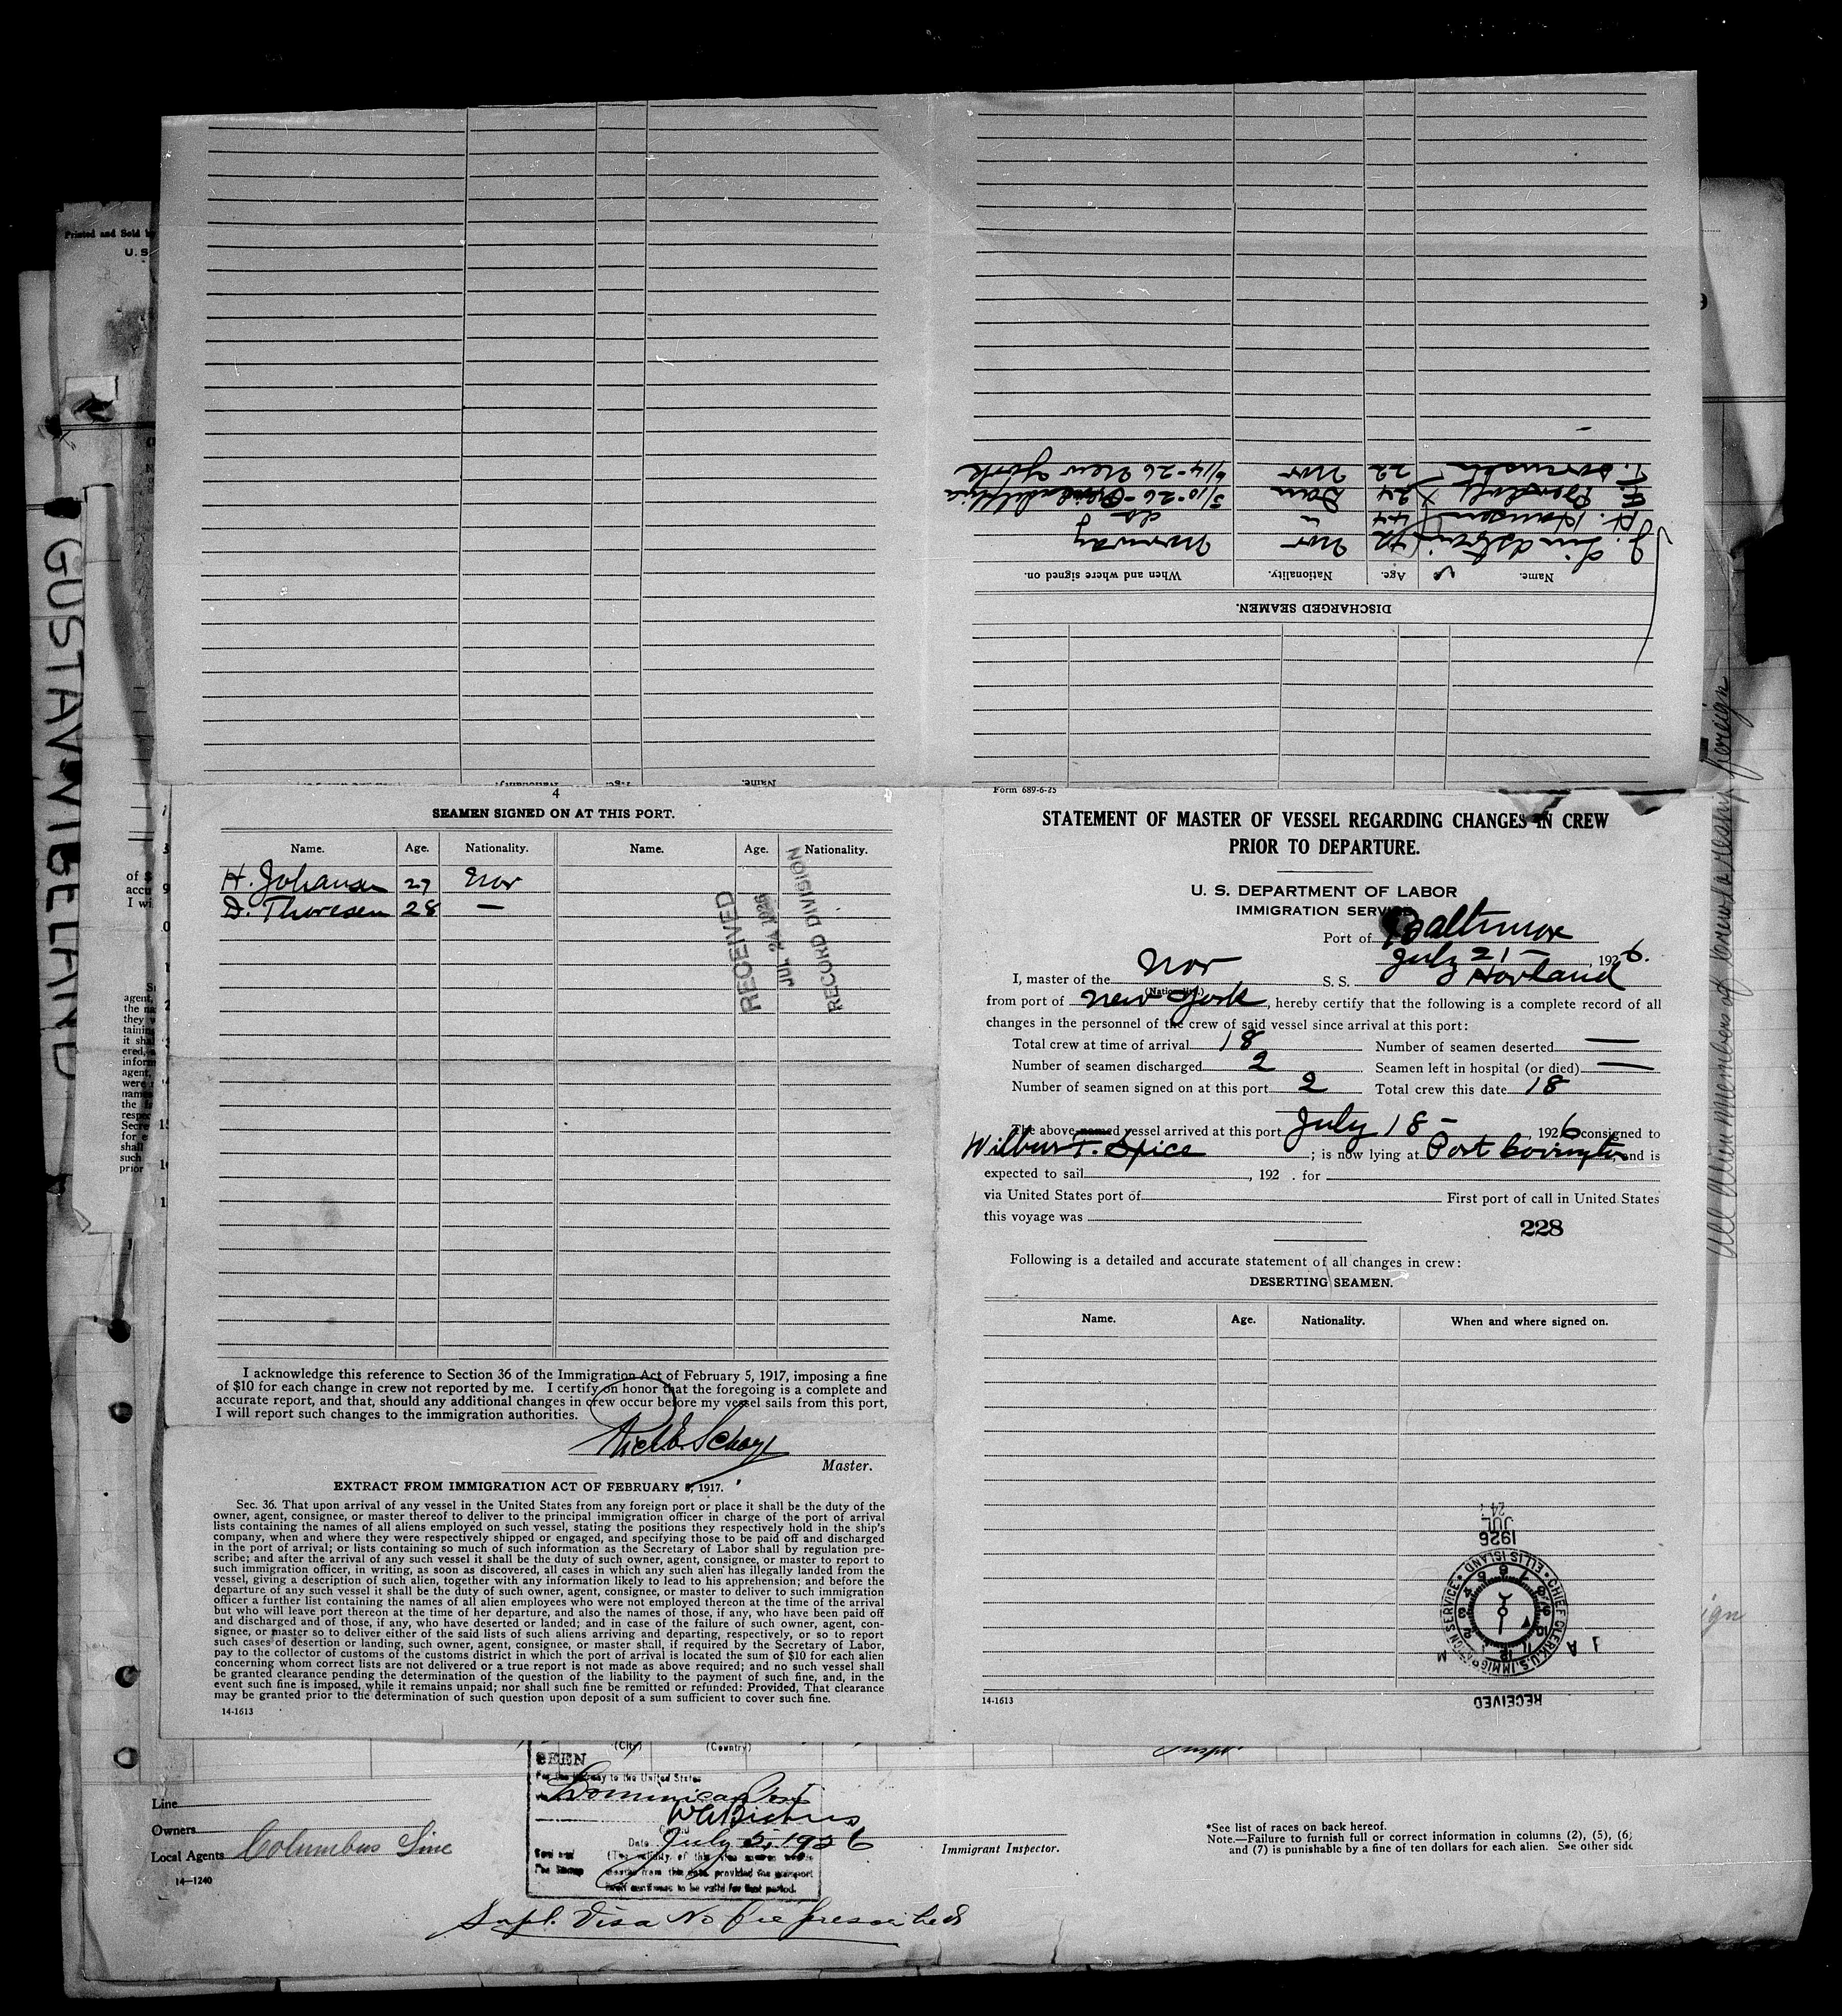 Printed and Sold by
U. S.
GUSTAV VIGELAND
DISCHARGED SEAMEN.
Name.
Age.
Nationality.
When and where signed on.
J. Lindstrom 42 Nor Norway
H. Hansen 44 " do
F. 24 Dan 5/10-26 - Philadelphia
T. Sorensen 22 Nor 6/14-26 New York
Name.
Age.
Nationality.
4
SEAMEN SIGNED ON AT THIS PORT.
Name. Age. Nationality. Name. Age. Nationality.
H. Johansen 27 Nor
D. Thoresen 28 —
RECEIVED
JUL 24 1926
RECORD DIVISION
I acknowledge this reference to Section 36 of the Immigration Act of February 5, 1917, imposing a fine
of $10 for each change in crew not reported by me. I certify on honor that the foregoing is a complete and
accurate report, and that, should any additional changes in crew occur before my vessel sails from this port,
I will report such changes to the immigration authorities.
Master.
EXTRACT FROM IMMIGRATION ACT OF FEBRUARY 5, 1917.
Sec. 36. That upon arrival of any vessel in the United States from any foreign port or place it shall be the duty of the
owner, agent, consignee, or master thereof to deliver to the principal immigration officer in charge of the port of arrival
lists containing the names of all aliens employed on such vessel, stating the positions they respectively hold in the ship's
company, when and where they were respectively shipped or engaged, and specifying those to be paid off and discharged
in the port of arrival; or lists containing so much of such information as the Secretary of Labor shall by regulation pre-
scribe; and after the arrival of any such vessel it shall be the duty of such owner, agent, consignee, or master to report to
such immigration officer, in writing, as soon as discovered, all cases in which any such alien has illegally landed from the
vessel, giving a description of such alien, together with any information likely to lead to his apprehension; and before the
departure of any such vessel it shall be the duty of such owner, agent, consignee, or master to deliver to such immigration
officer a further list containing the names of all alien employees who were not employed thereon at the time of the arrival
but who will leave port thereon at the time of her departure, and also the names of those, if any, who have been paid off
and discharged and of those, if any, who have deserted or landed; and in case of the failure of such owner, agent, con-
signee, or master so to deliver either of the said lists of such aliens arriving and departing, respectively, or so to report
such cases of desertion or landing, such owner, agent, consignee, or master shall, if required by the Secretary of Labor,
pay to the collector of customs of the customs district in which the port of arrival is located the sum of $10 for each alien
concerning whom correct lists are not delivered or a true report is not made as above required; and no such vessel shall
be granted clearance pending the determination of the question of the liability to the payment of such fine, and, in the
event such fine is imposed, while it remains unpaid; nor shall such fine be remitted or refunded: Provided, That clearance
may be granted prior to the determination of such question upon deposit of a sum sufficient to cover such fine.
14-1613
Form 689-6-25
STATEMENT OF MASTER OF VESSEL REGARDING CHANGES IN CREW
PRIOR TO DEPARTURE.
U. S. DEPARTMENT OF LABOR
IMMIGRATION SERVICE
Port of Baltimore
July 21 - , 1926.
I, master of the Nor S. S. Hovland
(Nationality.)
from port of New York, hereby certify that the following is a complete record of all
changes in the personnel of the crew of said vessel since arrival at this port:
Total crew at time of arrival 18 Number of seamen deserted —
Number of seamen discharged 2 Seamen left in hospital (or died) —
Number of seamen signed on at this port 2 Total crew this date 18
The above-named vessel arrived at this port July 18 - , 1926 consigned to
Wilbur F. Spice ; is now lying at Port Covington, and is
expected to sail , 192 . for
via United States port of First port of call in United States
this voyage was
228
Following is a detailed and accurate statement of all changes in crew:
DESERTING SEAMEN.
Name. Age. Nationality. When and where signed on.
JUL 24
1926
CHIEF CLERK, U.S. IMMIGRATION SERVICE • ELLIS ISLAND •
RECEIVED
14-1613
All alien members of crew foreign
(City) (Country)
SEEN
For the journey to the United States
Date July 2, 1926
Line
Owners
Local Agents Columbus Line
14—1240
Immigrant Inspector.
*See list of races on back hereof.
Note.—Failure to furnish full or correct information in columns (2), (5), (6)
and (7) is punishable by a fine of ten dollars for each alien. See other side
Supl. Visa No Fee prescribed